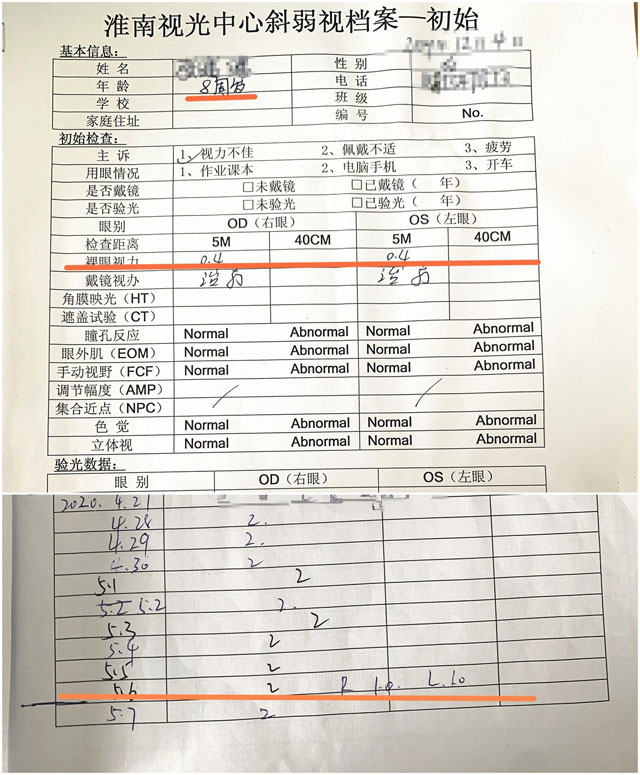 淮南视光中心斜弱视档案—初始
基本信息：
姓 名 性 别
年 龄 8周岁 电 话
学 校 班 级
家庭住址 编 号 No.
初始检查：
主 诉 1、视力不佳 2、佩戴不适 3、疲劳
用眼情况 1、作业课本 2、电脑手机 3、开车
是否戴镜 □未戴镜 □已戴镜（ 年）
是否验光 □未验光 □已验光（ 年）
眼别 OD（右眼） OS（左眼）
检查距离 5M 40CM 5M 40CM
裸眼视力 0.4 0.4
戴镜视力
角膜映光（HT）
遮盖试验（CT）
瞳孔反应 Normal Abnormal Normal Abnormal
眼外肌（EOM） Normal Abnormal Normal Abnormal
手动视野（FCF） Normal Abnormal Normal Abnormal
调节幅度（AMP）
集合近点（NPC）
色 觉 Normal Abnormal Normal Abnormal
立体视 Normal Abnormal Normal Abnormal
验光数据：
眼 别 OD（右眼） OS（左眼）
2020. 4.21
4.28 2.
4.29 2.
4.30 2
5.1 2
5.2 5.2 2.
5.3 2
5.4 2
5.5 2
5.6 2 R 1.0. L 1.0
5.7 2